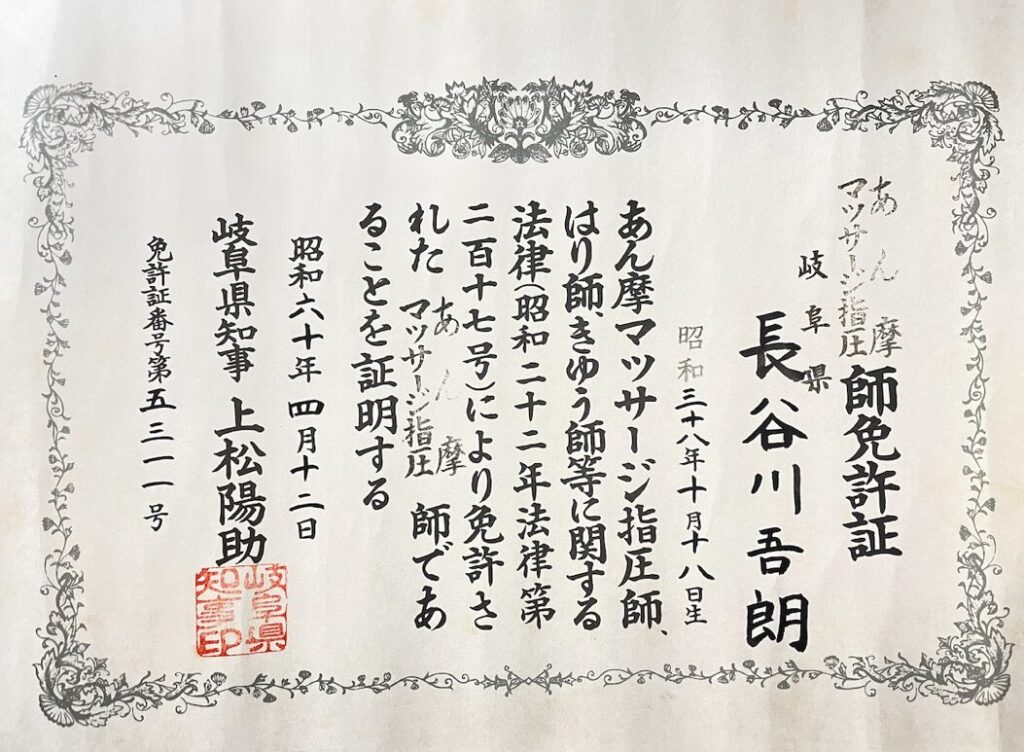 あん摩
マツサージ指圧
師免許証
岐阜県
長谷川吾朗
昭和三十八年十月十八日生
あん摩マツサージ指圧師、
はり師、きゆう師等に関する
法律(昭和二十二年法律第
二百十七号)により免許さ
れた
あん摩
マツサージ指圧
師であ
ることを証明する
昭和六十年四月十二日
岐阜県知事 上松陽助
岐阜県
知事印
免許証番号第五三一一号